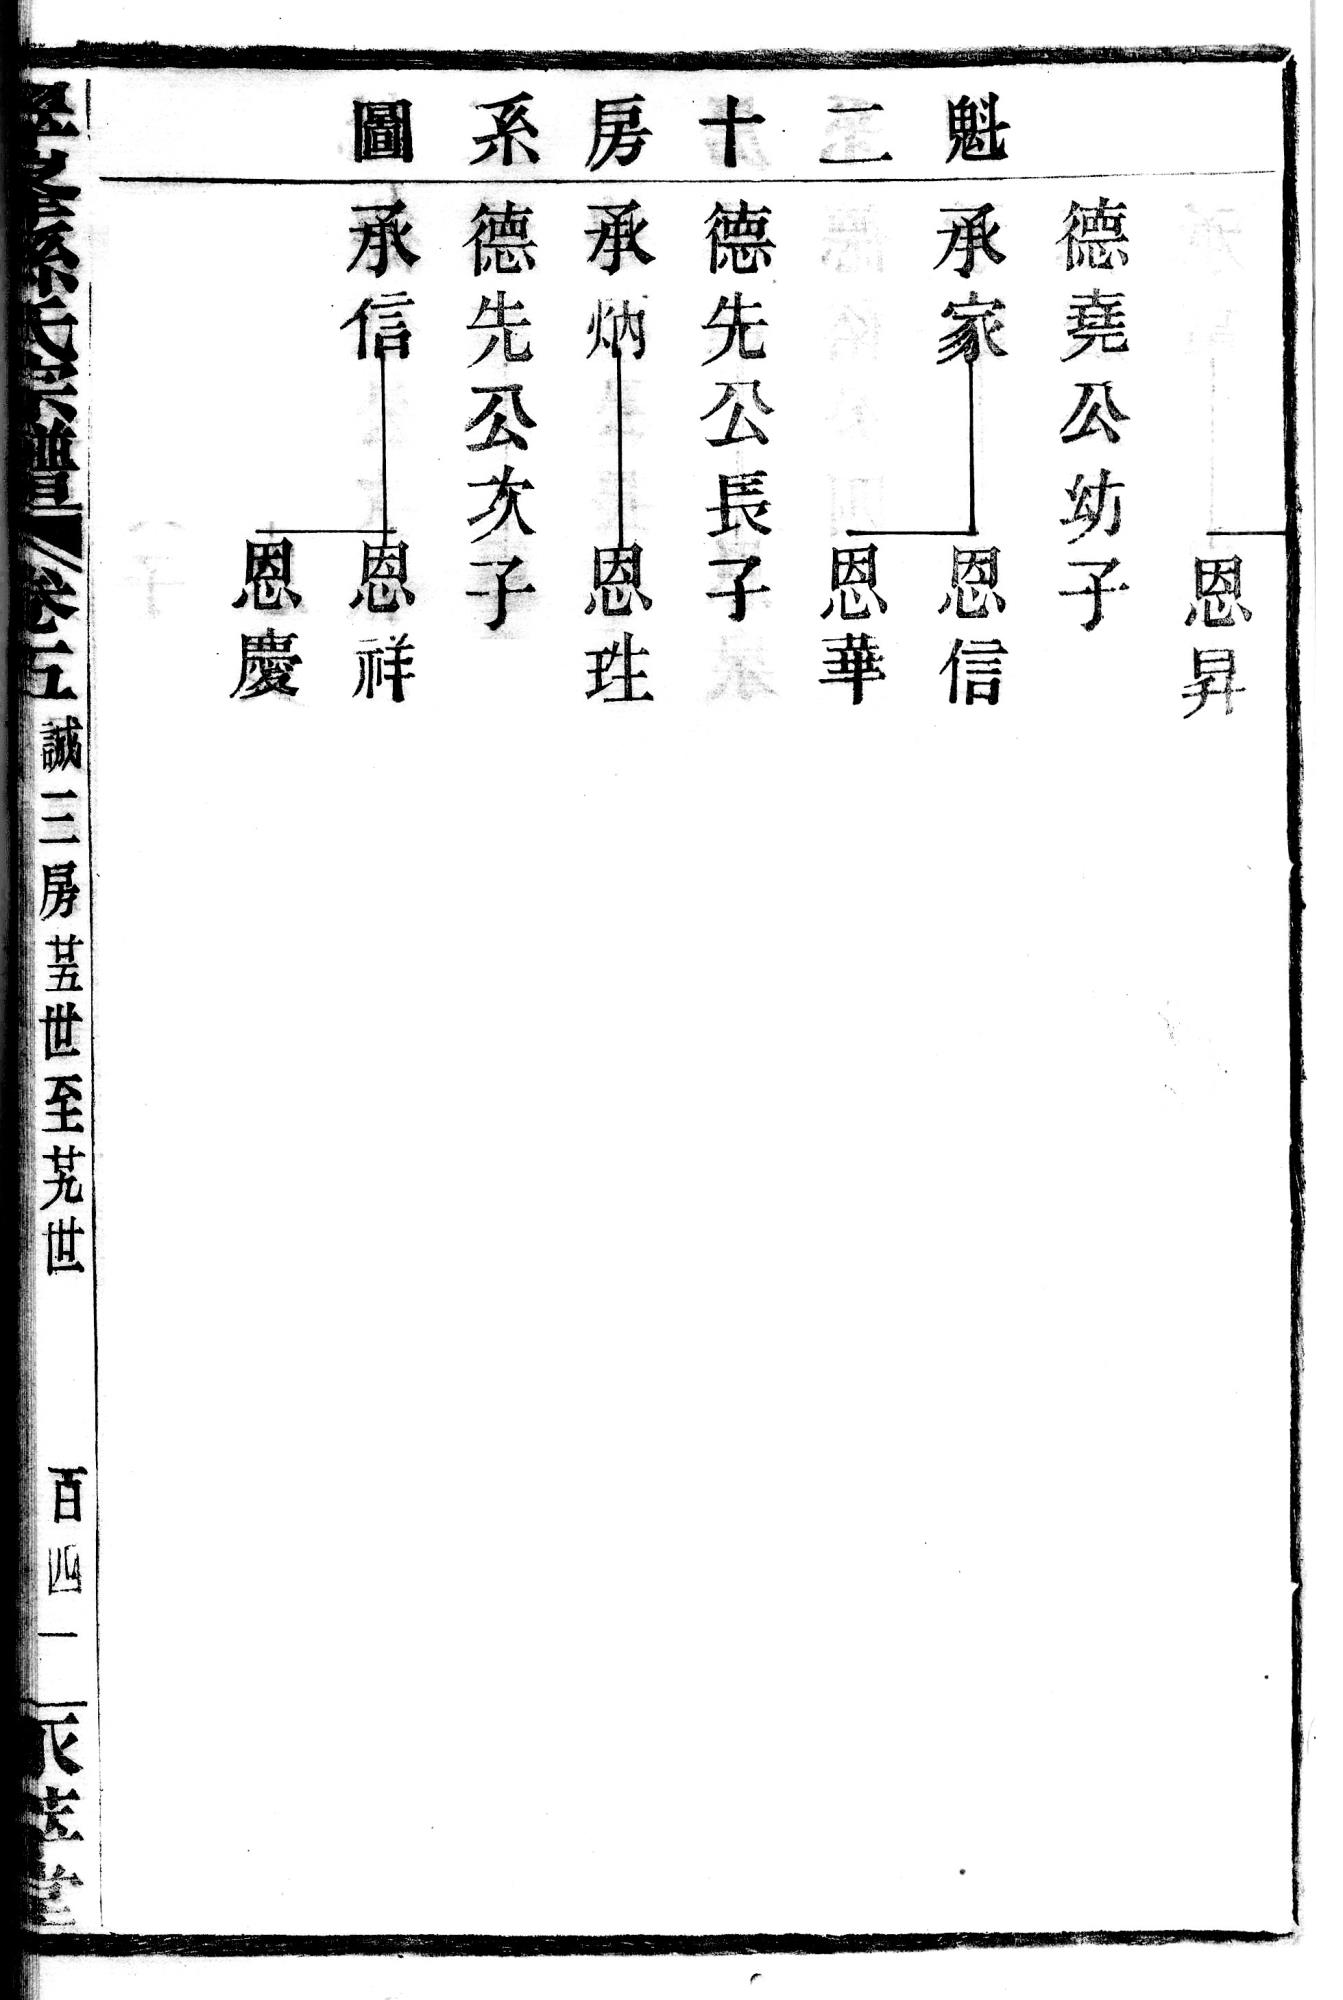 魁二十房系圖
恩昇
德堯公幼子
承家
恩信
恩華
德先公長子
承炳
恩珄
德先公次子
承信
恩祥
恩慶
孫氏宗譜
卷五
誠三房廿五世至廿九世
百四一
堂